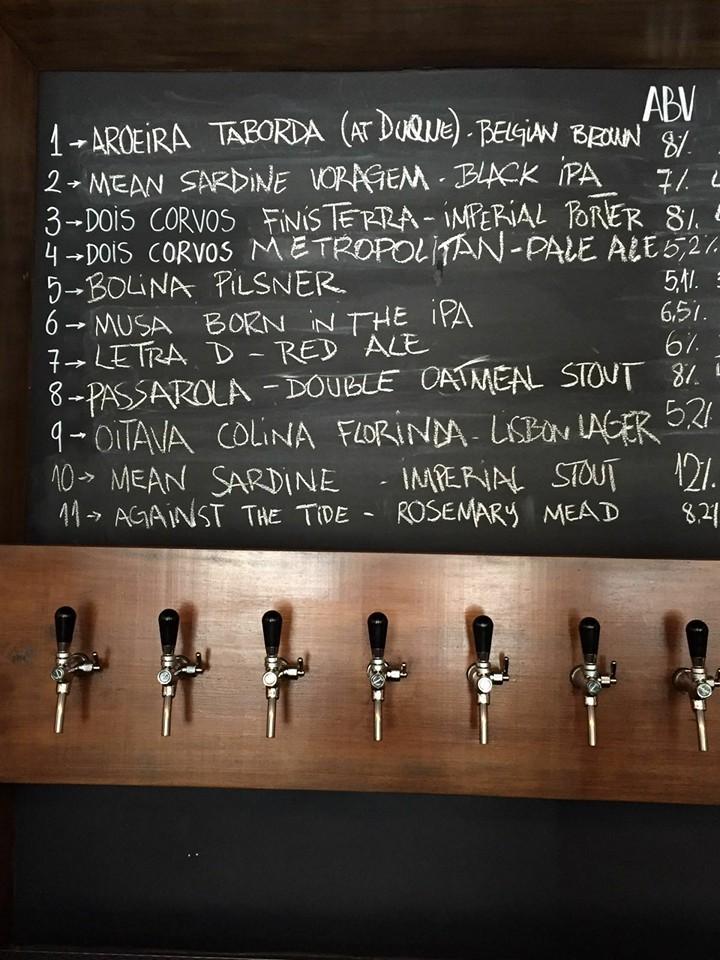 ABV
1→AROEIRA TABORDA (AT DUQUE). BELGIAN BROWN 8%
2→MEAN SARDINE VORAGEM. BLACK IPA 7%
3→DOIS CORVOS FINISTERRA-IMPERIAL PORTER 8%
4→DOIS CORVOS METROPOLITAN-PALE ALE 5,2%
5→BOLINA PILSNER 5,1%
6→MUSA BORN IN THE IPA 6,5%
7→LETRA D-RED ALE 6%
8→PASSAROLA-DOUBLE OATMEAL STOUT 8%
9→OITAVA COLINA FLORINDA-LISBON LAGER 5,2%
10→MEAN SARDINE - IMPERIAL STOUT 12%
11→AGAINST THE TIDE - ROSEMARY MEAD 8,2%